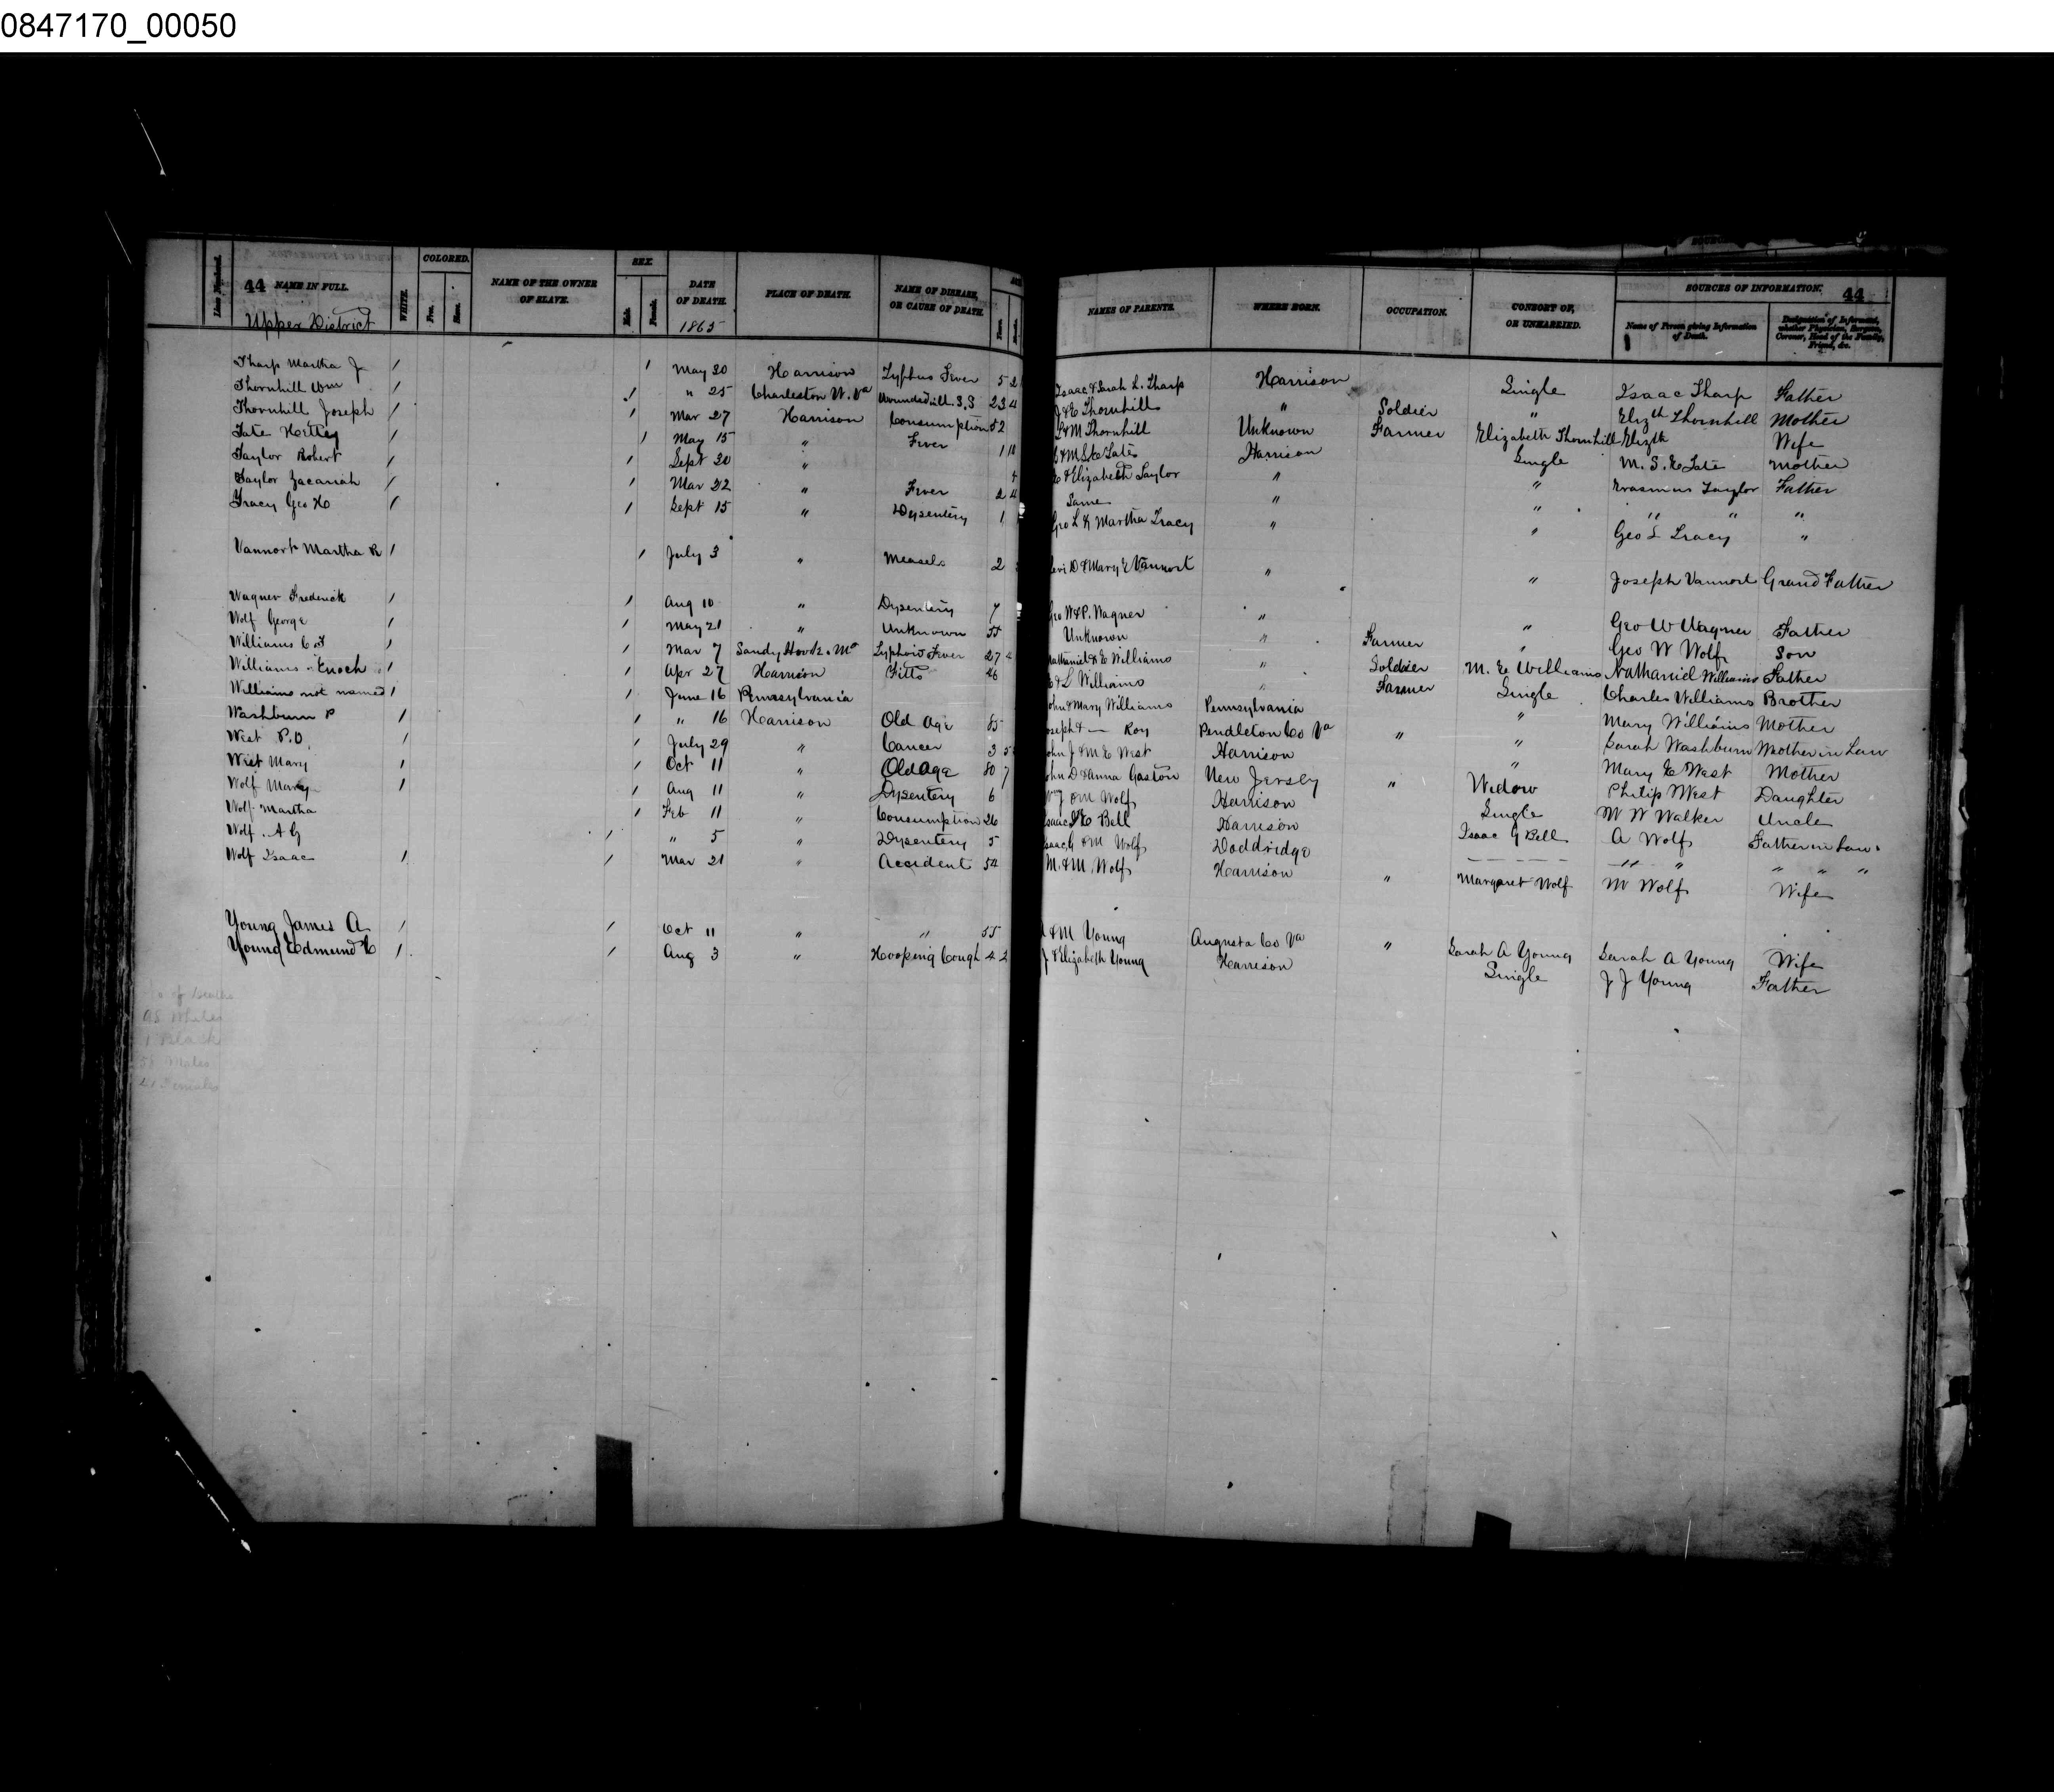 0847170_00050
Line Numbered.
44 NAME IN FULL.
Upper District
WHITE.
COLORED.
Free.
Slave.
NAME OF THE OWNER
OF SLAVE.
SEX.
Male.
Female.
DATE
OF DEATH.
1865
PLACE OF DEATH.
NAME OF DISEASE,
OR CAUSE OF DEATH.
Years.
NAMES OF PARENTS.
WHERE BORN.
OCCUPATION.
CONSORT OF,
OR UNMARRIED.
SOURCES OF INFORMATION. 44
Name of Person giving Information
of Death.
Designation of Informant,
whether Physician, Surgeon,
Coroner, Head of the Family,
Friend, &c.
Tharp Martha J / / May 20 Harrison Typhus Fever 5 2 Isaac & Sarah L. Tharp Harrison Single Isaac Tharp Father
Thornhill Wm / / " 25 Charleston W. Va Wounded 23 4 J & E Thornhill " Soldier " Elizth Thornhill Mother
Thornhill Joseph / / Mar 27 Harrison Consumption 52 L & M Thornhill Unknown Farmer Elizabeth Thornhill Elizth Wife
Tate Hettey / / May 15 " Fever 1 10 Harrison Single M. S. E Tate Mother
Taylor Robert / / Sept 20 " 4 & Elizabeth Taylor " " Erasmus Taylor Father
Taylor Zacariah / / Mar 22 " Fever 2 4 Same " " " " "
Tracy Geo H / / Sept 15 " Dysentery 1 Geo L & Martha Tracy " " Geo L Tracy "
Vannort Martha R / / July 3 " Measels 2 Levi D & Mary E Vannort " " Joseph Vannort Grand Father
Wagner Frederick / / Aug 10 " Dysentery 7 Geo W & P. Wagner " " Geo W Wagner Father
Wolf George / / May 21 " Unknown 55 Unknown " Farmer " Geo W Wolf Son
Williams C F / / Mar 7 Sandy Hook Md Typhoid Fever 27 4 Nathaniel & E Williams " Soldier M. E Williams Nathaniel Williams Father
Williams Enoch / / Apr 27 Harrison Fitts 46 & L Williams " Farmer Single Charles Williams Brother
Williams not named / / June 16 Pennsylvania John & Mary Williams Pennsylvania " Mary Williams Mother
Washburn P / / " 16 Harrison Old Age 85 Joseph & — Roy Pendleton Co Va " " Sarah Washburn Mother in Law
West P. D. / / July 29 " Cancer 3 5 John J & M E West Harrison " Mary E West Mother
West Mary / / Oct 11 " Old Age 80 7 John D & Anna Gaston New Jersey " Widow Philip West Daughter
Wolf Mary / / Aug 11 " Dysentery 6 Wm J & M Wolf Harrison Single M W Walker Uncle
Wolf Martha / Feb 11 " Consumption 26 Isaac & E Bell Harrison Isaac G Bell A Wolf Father in Law
Wolf A G / " 5 " Dysentery 5 Isaac G & M Wolf Doddridge " " " " "
Wolf Isaac / / Mar 21 " Accident 54 M. & M. Wolf Harrison " Margaret Wolf M Wolf Wife
Young James A / / Oct 11 " " 55 & M Young Augusta Co Va " Sarah A Young Sarah A Young Wife
Young Edmund C / / Aug 3 " Hooping Cough 4 2 J & Elizabeth Young Harrison Single J J Young Father
No of Deaths
Whites
1 Black
58 Males
41 Females